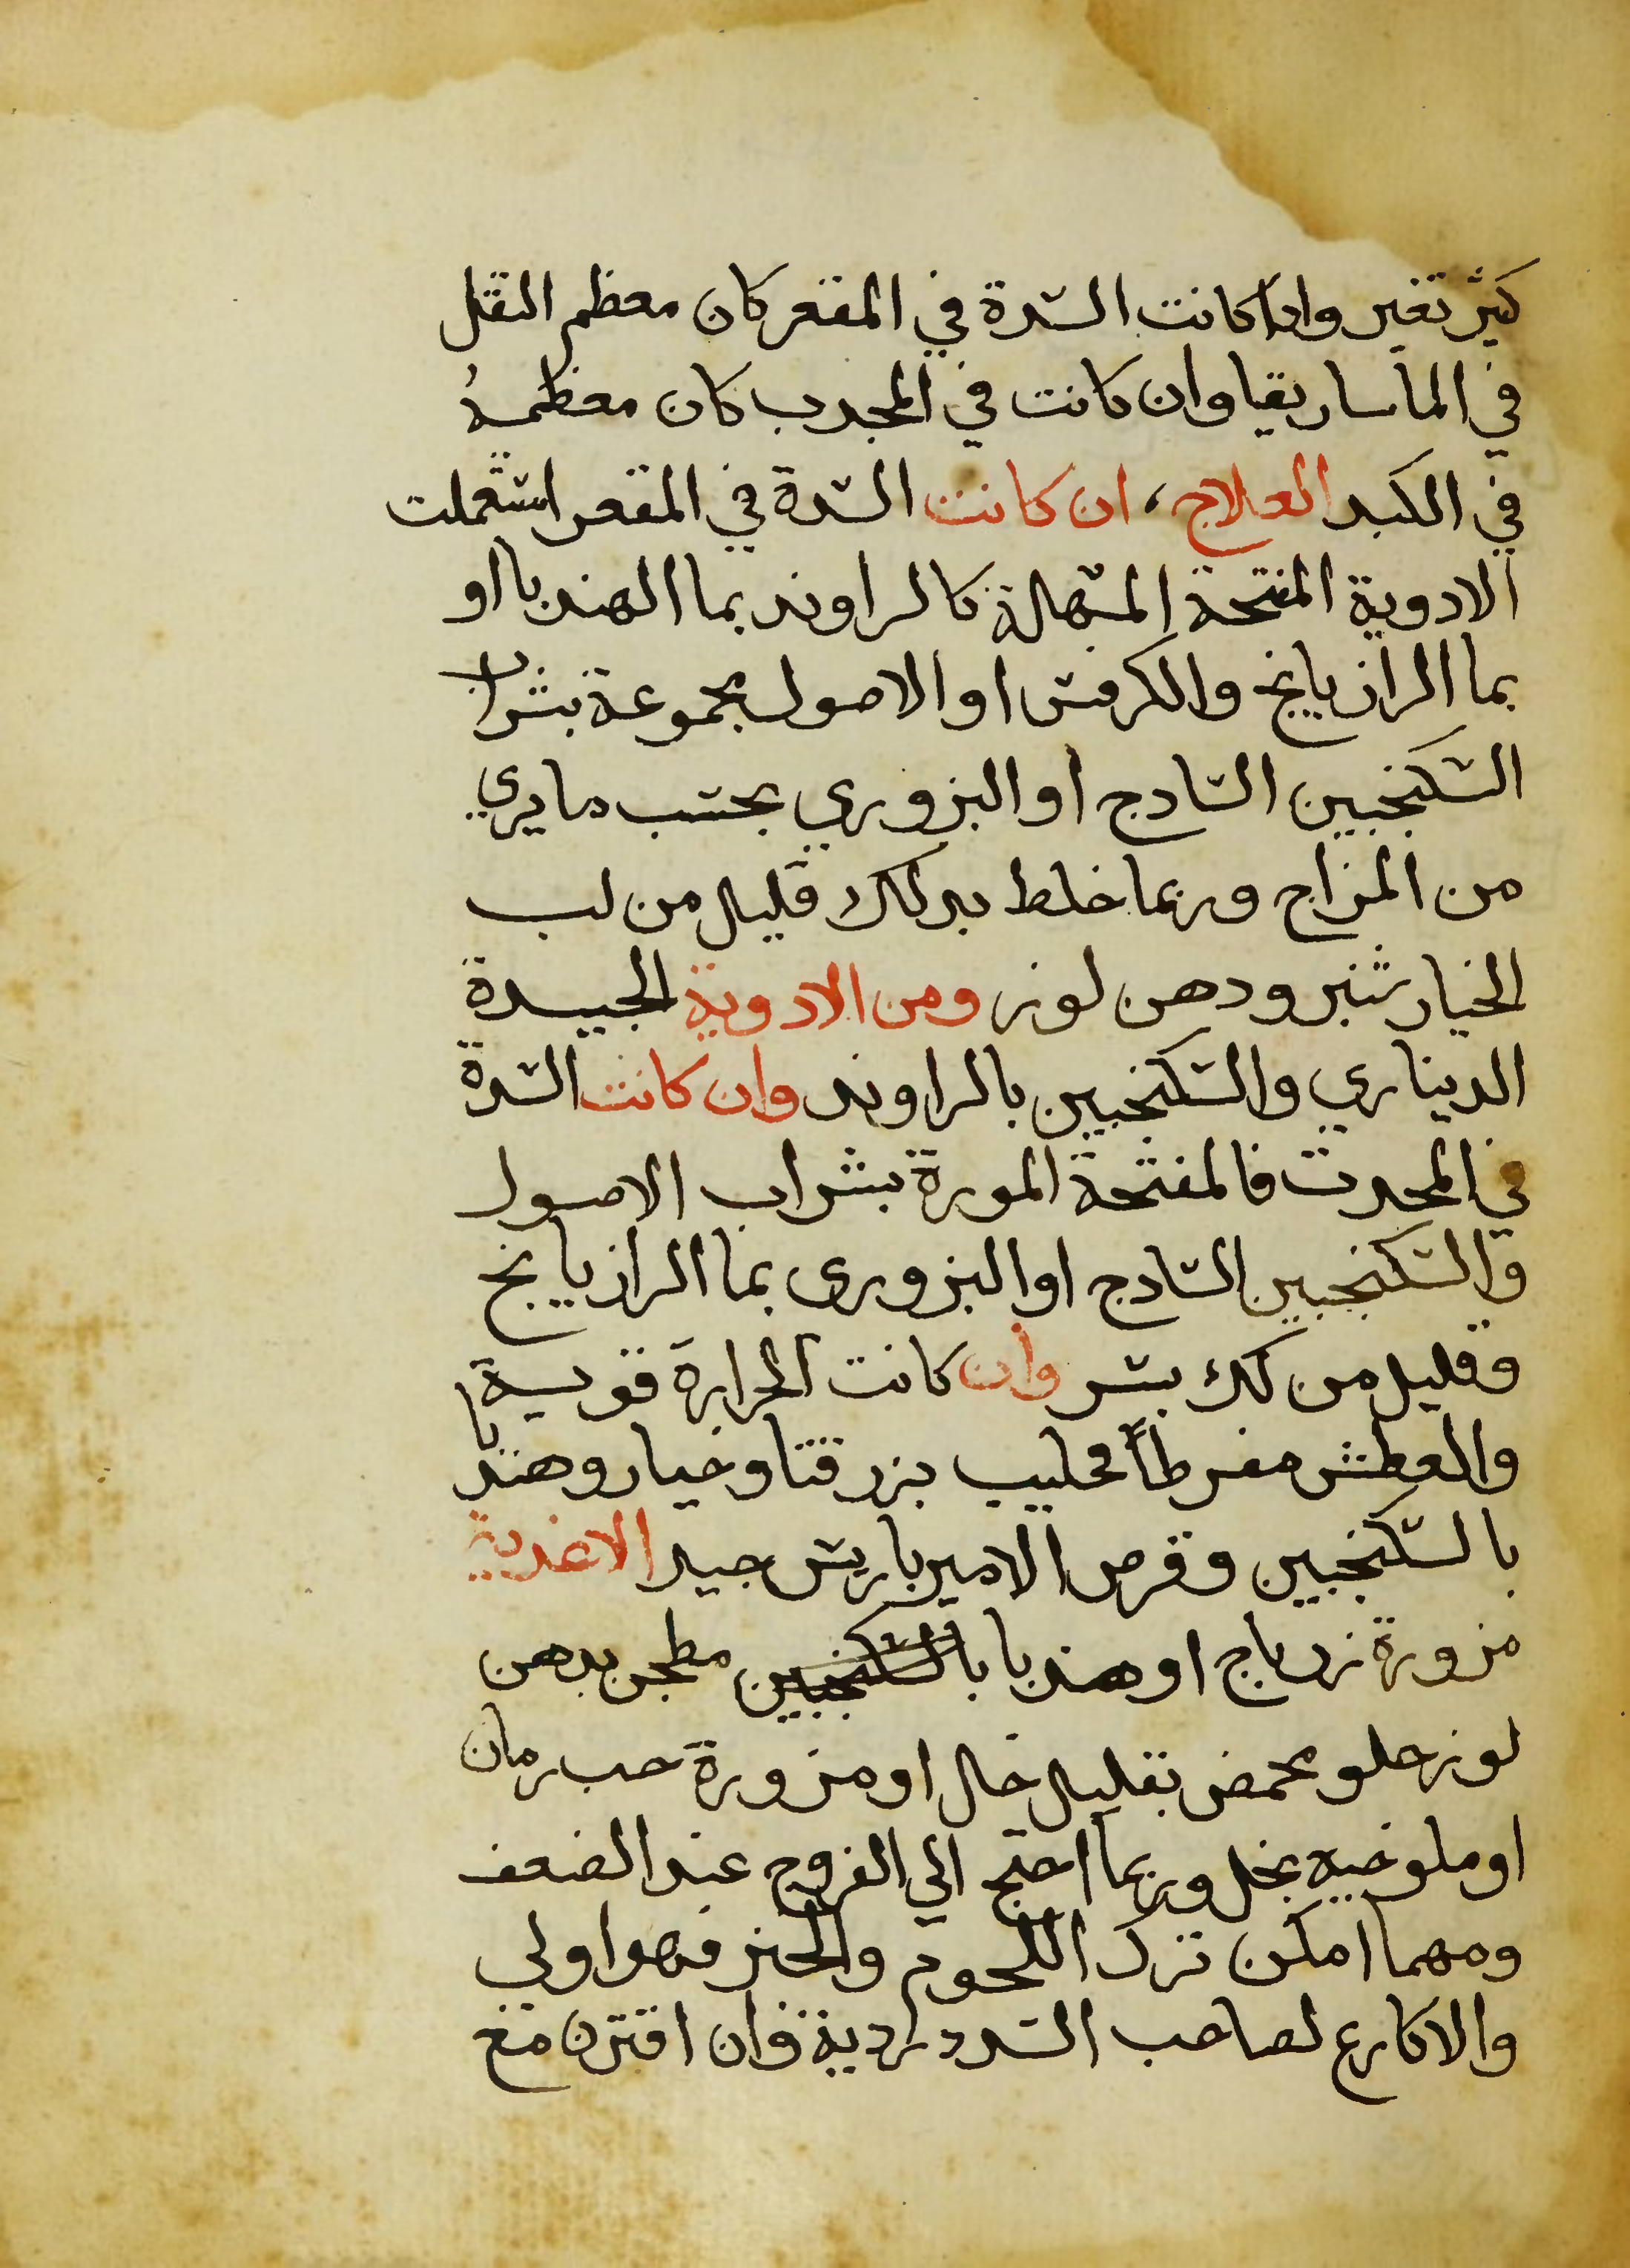 كثير تغير واذا كانت السدة في المقعر كان معظم الثقل
في الماساريقا وان كانت في المحدب كان معظمهُ
في الكبد العلاج، ان كانت السدة في المقعر استعملت
الادوية المفتحة المسهلة كالراوند بما الهندبا او
بما الرازيانج والكرفس او الاصول مجموعة بشراب
السكنجبين السادج او البزوري بحسب ما يري
من المزاج وربما خلط بدلك قليل من لب
الخيار شنبر ودهن لوز ومن الادوية الجيدة
الديناري والسكنجبين بالراوند وان كانت السدة
في المحدب فالمفتحة المدرة بشراب الاصول
والسكنجبين السادج او البزوري بما الرازيانج
وقليل من لك بسر وان كانت الحرارة قوية
والعطش مفرطاً فحليب بزر قثا وخيار وهندبا
بالسكنجبين وقرص الامير باريس جيد الاغدية
مزورة زرباج او هندبا بالسكنجبين مطجن بدهن
لوز حلو محمض بقليل خل او مزورة حب رمان
او ملوخيه بخل وربما احتج الي الفروج عند الضعف
ومهما امكن ترك اللحوم والخبز فهو اولي
والاكارع لصاحب السدد ردية فان اقترن مع